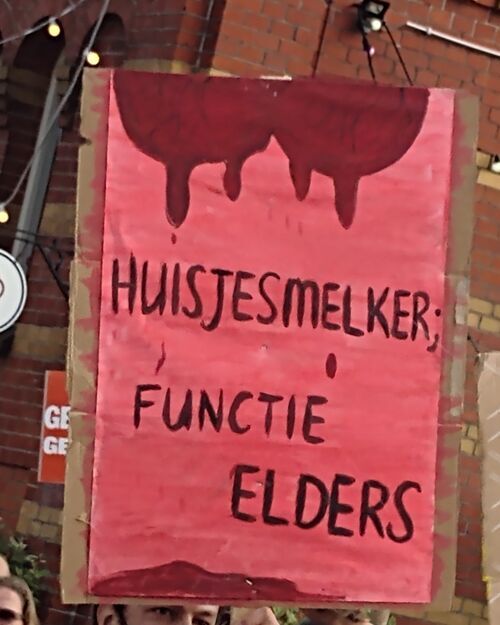 HUISJESMELKER;
FUNCTIE
ELDERS
GE
GE